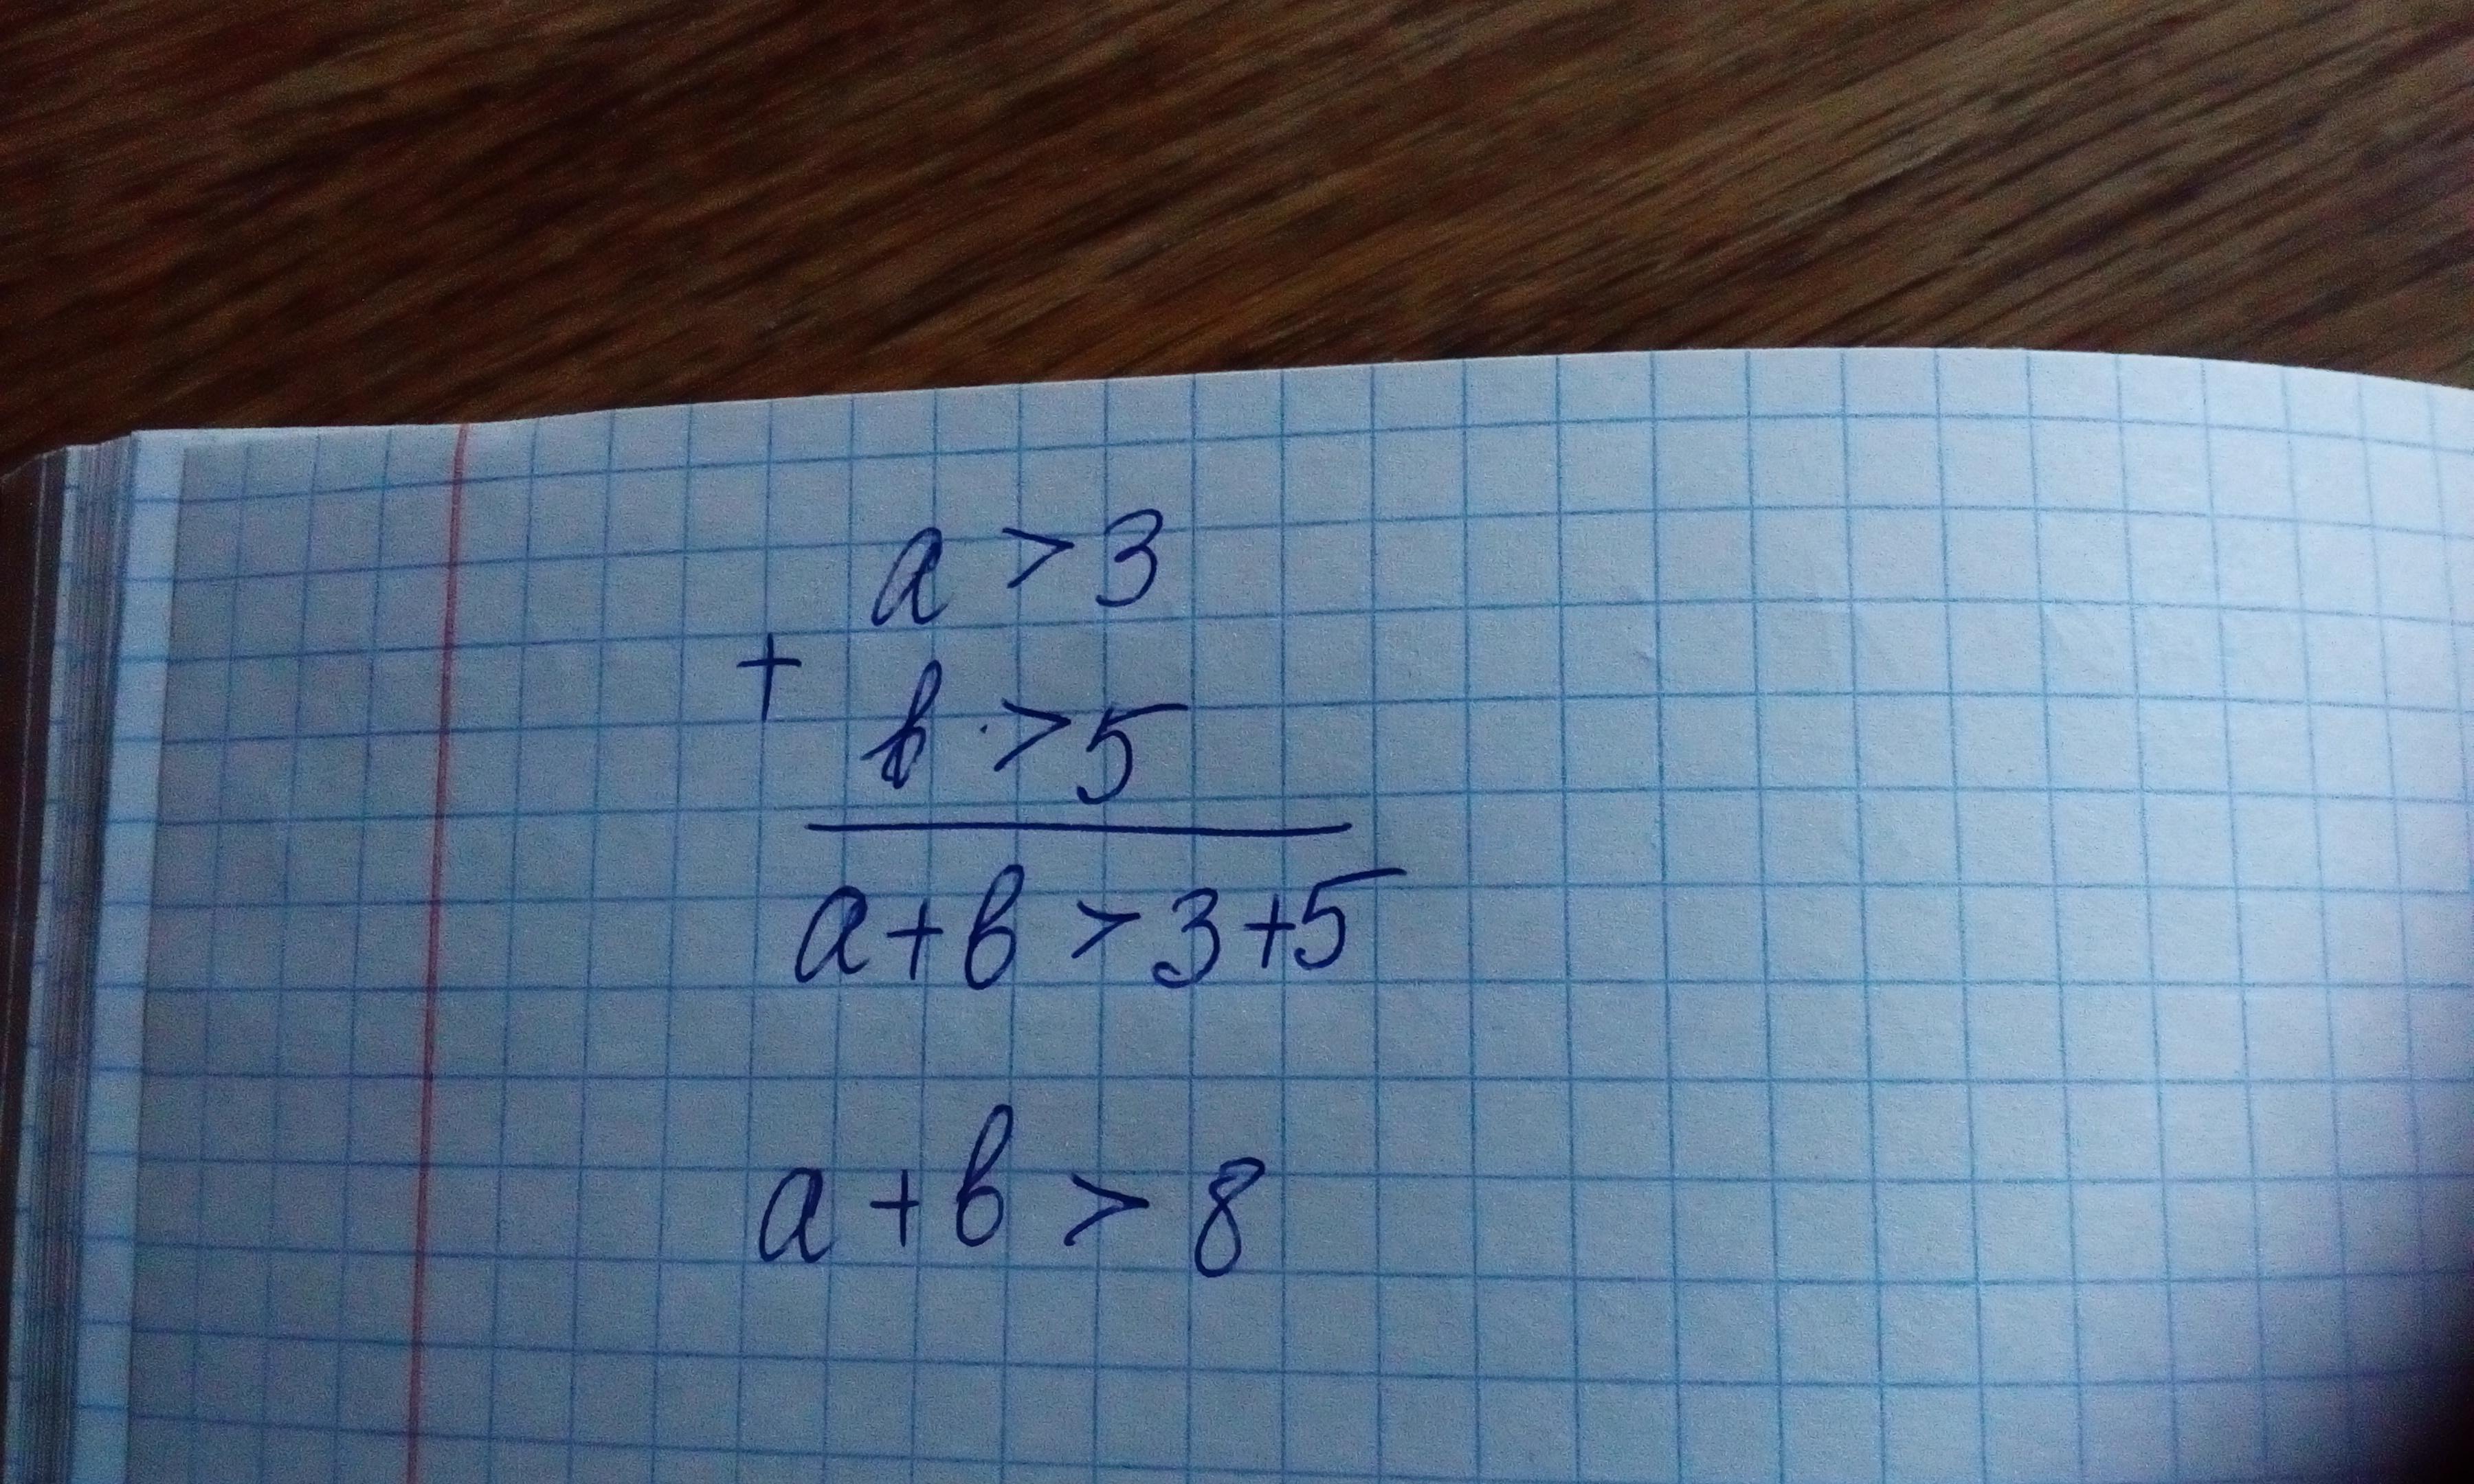 a > 3
+
b > 5
a + b > 3 + 5
a + b > 8